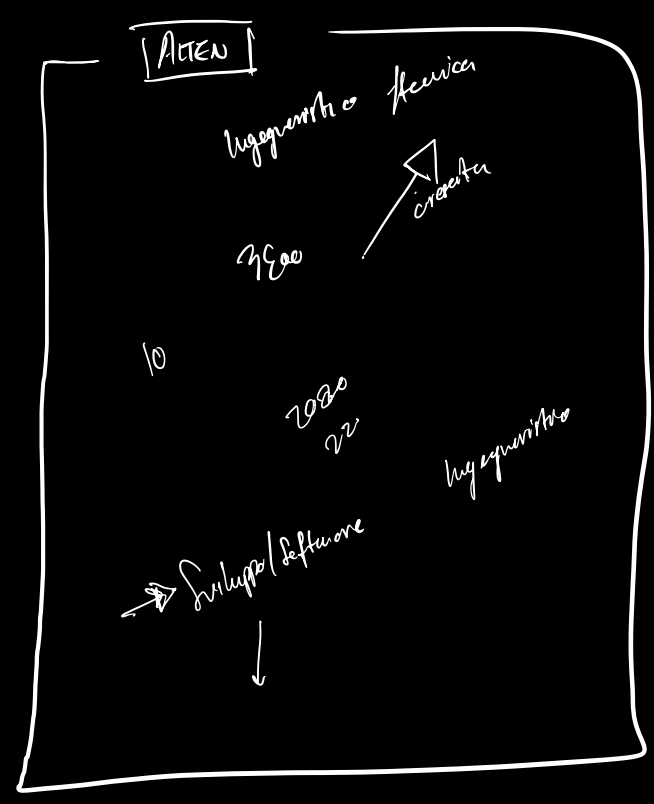 ALTEN
Ingegneristica tecnica
crescita
10
2020
22
Ingegneristica
Sviluppo/Software